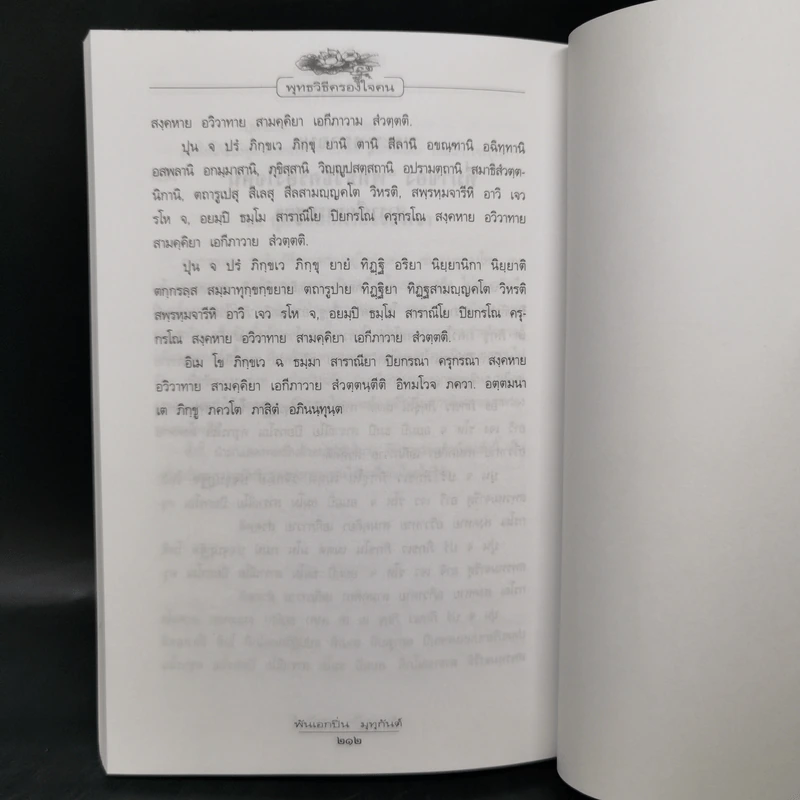 พุทธวิธีครองใจคน
สงฺคหาย อวิวาทาย สามคฺคิยา เอกีภาวาม สํวตฺตติ.
ปุน จ ปรํ ภิกฺขเว ภิกฺขุ ยานิ ตานิ สีลานิ อขณฺฑานิ อฉิทฺทานิ
อสพลานิ อกมฺมาสานิ, ภุชิสฺสานิ วิญฺญูปสตฺสถานิ อปรามตฺถานิ สมาธิสํวตฺต-
นิกานิ, ตถารูเปสุ สีเลสุ สีลสามญฺญคโต วิหรติ, สพฺรหฺมจารีหิ อาวิ เจว
รโห จ, อยมฺปิ ธมฺโม สาราณีโย ปิยกรโณ ครุกรโณ สงฺคหาย อวิวาทาย
สามคฺคิยา เอกีภาวาย สํวตฺตติ.
ปุน จ ปรํ ภิกฺขเว ภิกฺขุ ยายํ ทิฏฺฐิ อริยา นิยฺยานิกา นิยฺยาติ
ตกฺกรสฺส สมฺมาทุกฺขกฺขยาย ตถารูปาย ทิฏฺฐิยา ทิฏฺฐสามญฺญคโต วิหรติ
สพฺรหฺมจารีหิ อาวิ เจว รโห จ, อยมฺปิ ธมฺโม สาราณีโย ปิยกรโณ ครุ-
กรโณ สงฺคหาย อวิวาทาย สามคฺคิยา เอกีภาวาย สํวตฺตติ.
อิเม โข ภิกฺขเว ฉ ธมฺมา สาราณียา ปิยกรณา ครุกรณา สงฺคหาย
อวิวาทาย สามคฺคิยา เอกีภาวาย สํวตฺตนฺตีติ อิทมโวจ ภควา. อตฺตมนา
เต ภิกฺขู ภควโต ภาสิตํ อภินนฺทุนฺต
พันเอกปิ่น มุทุกันต์
๒๑๒